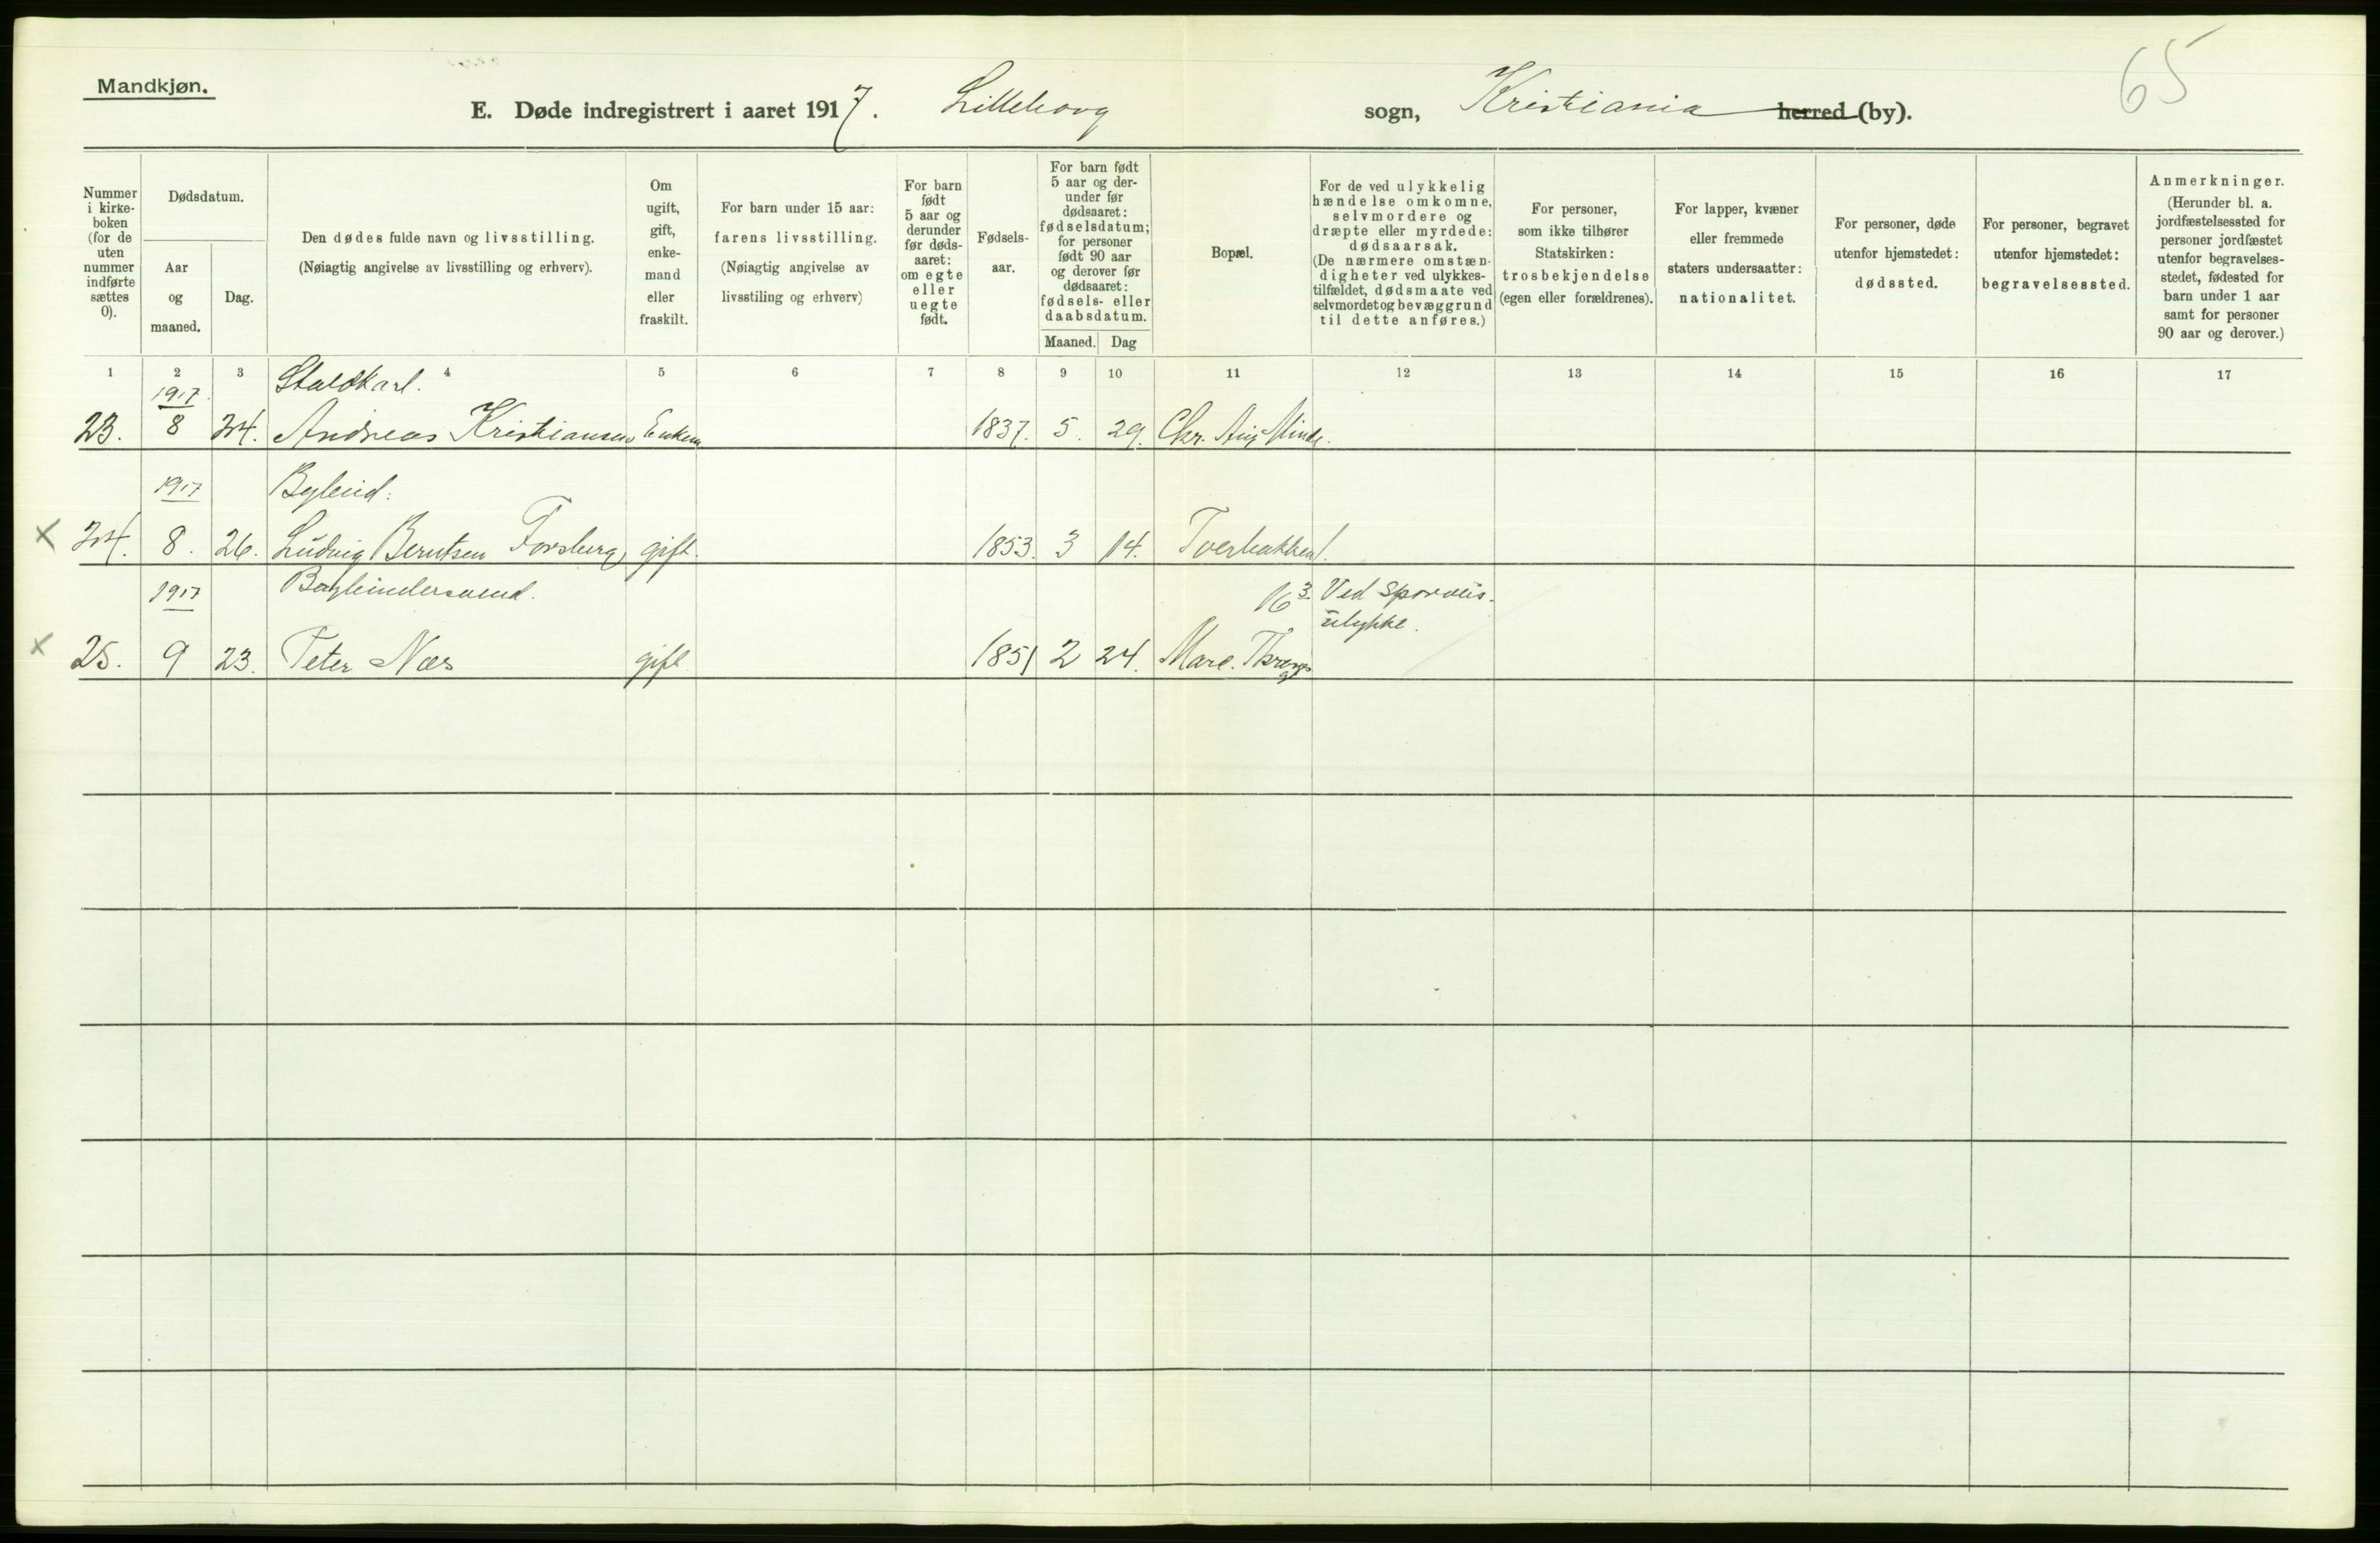 Mandkjøn.
65
E. Døde indregistrert i aaret 1917. Lilleborg sogn, Kristiania herred (by).
Nummer i kirke-boken (for de uten nummer indførte sættes 0).
Dødsdatum.
Aar og maaned.
Dag.
Den dødes fulde navn og livsstilling.
(Nøiagtig angivelse av livsstilling og erhverv).
Om ugift, gift, enke-mand eller fraskilt.
For barn under 15 aar: farens livsstilling.
(Nøiagtig angivelse av livsstiling og erhverv)
For barn født 5 aar og derunder før døds-aaret: om egte eller uegte født.
Fødsels-aar.
For barn født 5 aar og der-under før dødsaaret: fødselsdatum; for personer født 90 aar og derover før dødsaaret: fødsels- eller daabsdatum.
Maaned. Dag
Bopæl.
For de ved ulykkelig hændelse omkomne, selvmordere og dræpte eller myrdede: dødsaarsak.
(De nærmere omstæn-digheter ved ulykkes-tilfældet, dødsmaate ved selvmordet og bevæggrund til dette anføres.)
For personer, som ikke tilhører Statskirken: trosbekjendelse (egen eller forældrenes).
For lapper, kvæner eller fremmede staters undersaatter: nationalitet.
For personer, døde utenfor hjemstedet: dødssted.
For personer, begravet utenfor hjemstedet: begravelsessted.
Anmerkninger.
(Herunder bl. a. jordfæstelsessted for personer jordfæstet utenfor begravelses-stedet, fødested for barn under 1 aar samt for personer 90 aar og derover.)
1 2 3 4 5 6 7 8 9 10 11 12 13 14 15 16 17
1917. Staldkarl.
23. 8 24. Andreas Kristiansen Enkem 1837. 5. 29. Chr. Aug Minde.
1917 Byleid.
x 24. 8. 26. Ludvig Berntsen Forsberg gift. 1853. 3 14. Tverbakken 1.
1917 16 3. Ved Sporveis-
ulykke.
x 25. 9 23. Peter Næs gift 1851 2 24. Marc. Thranes